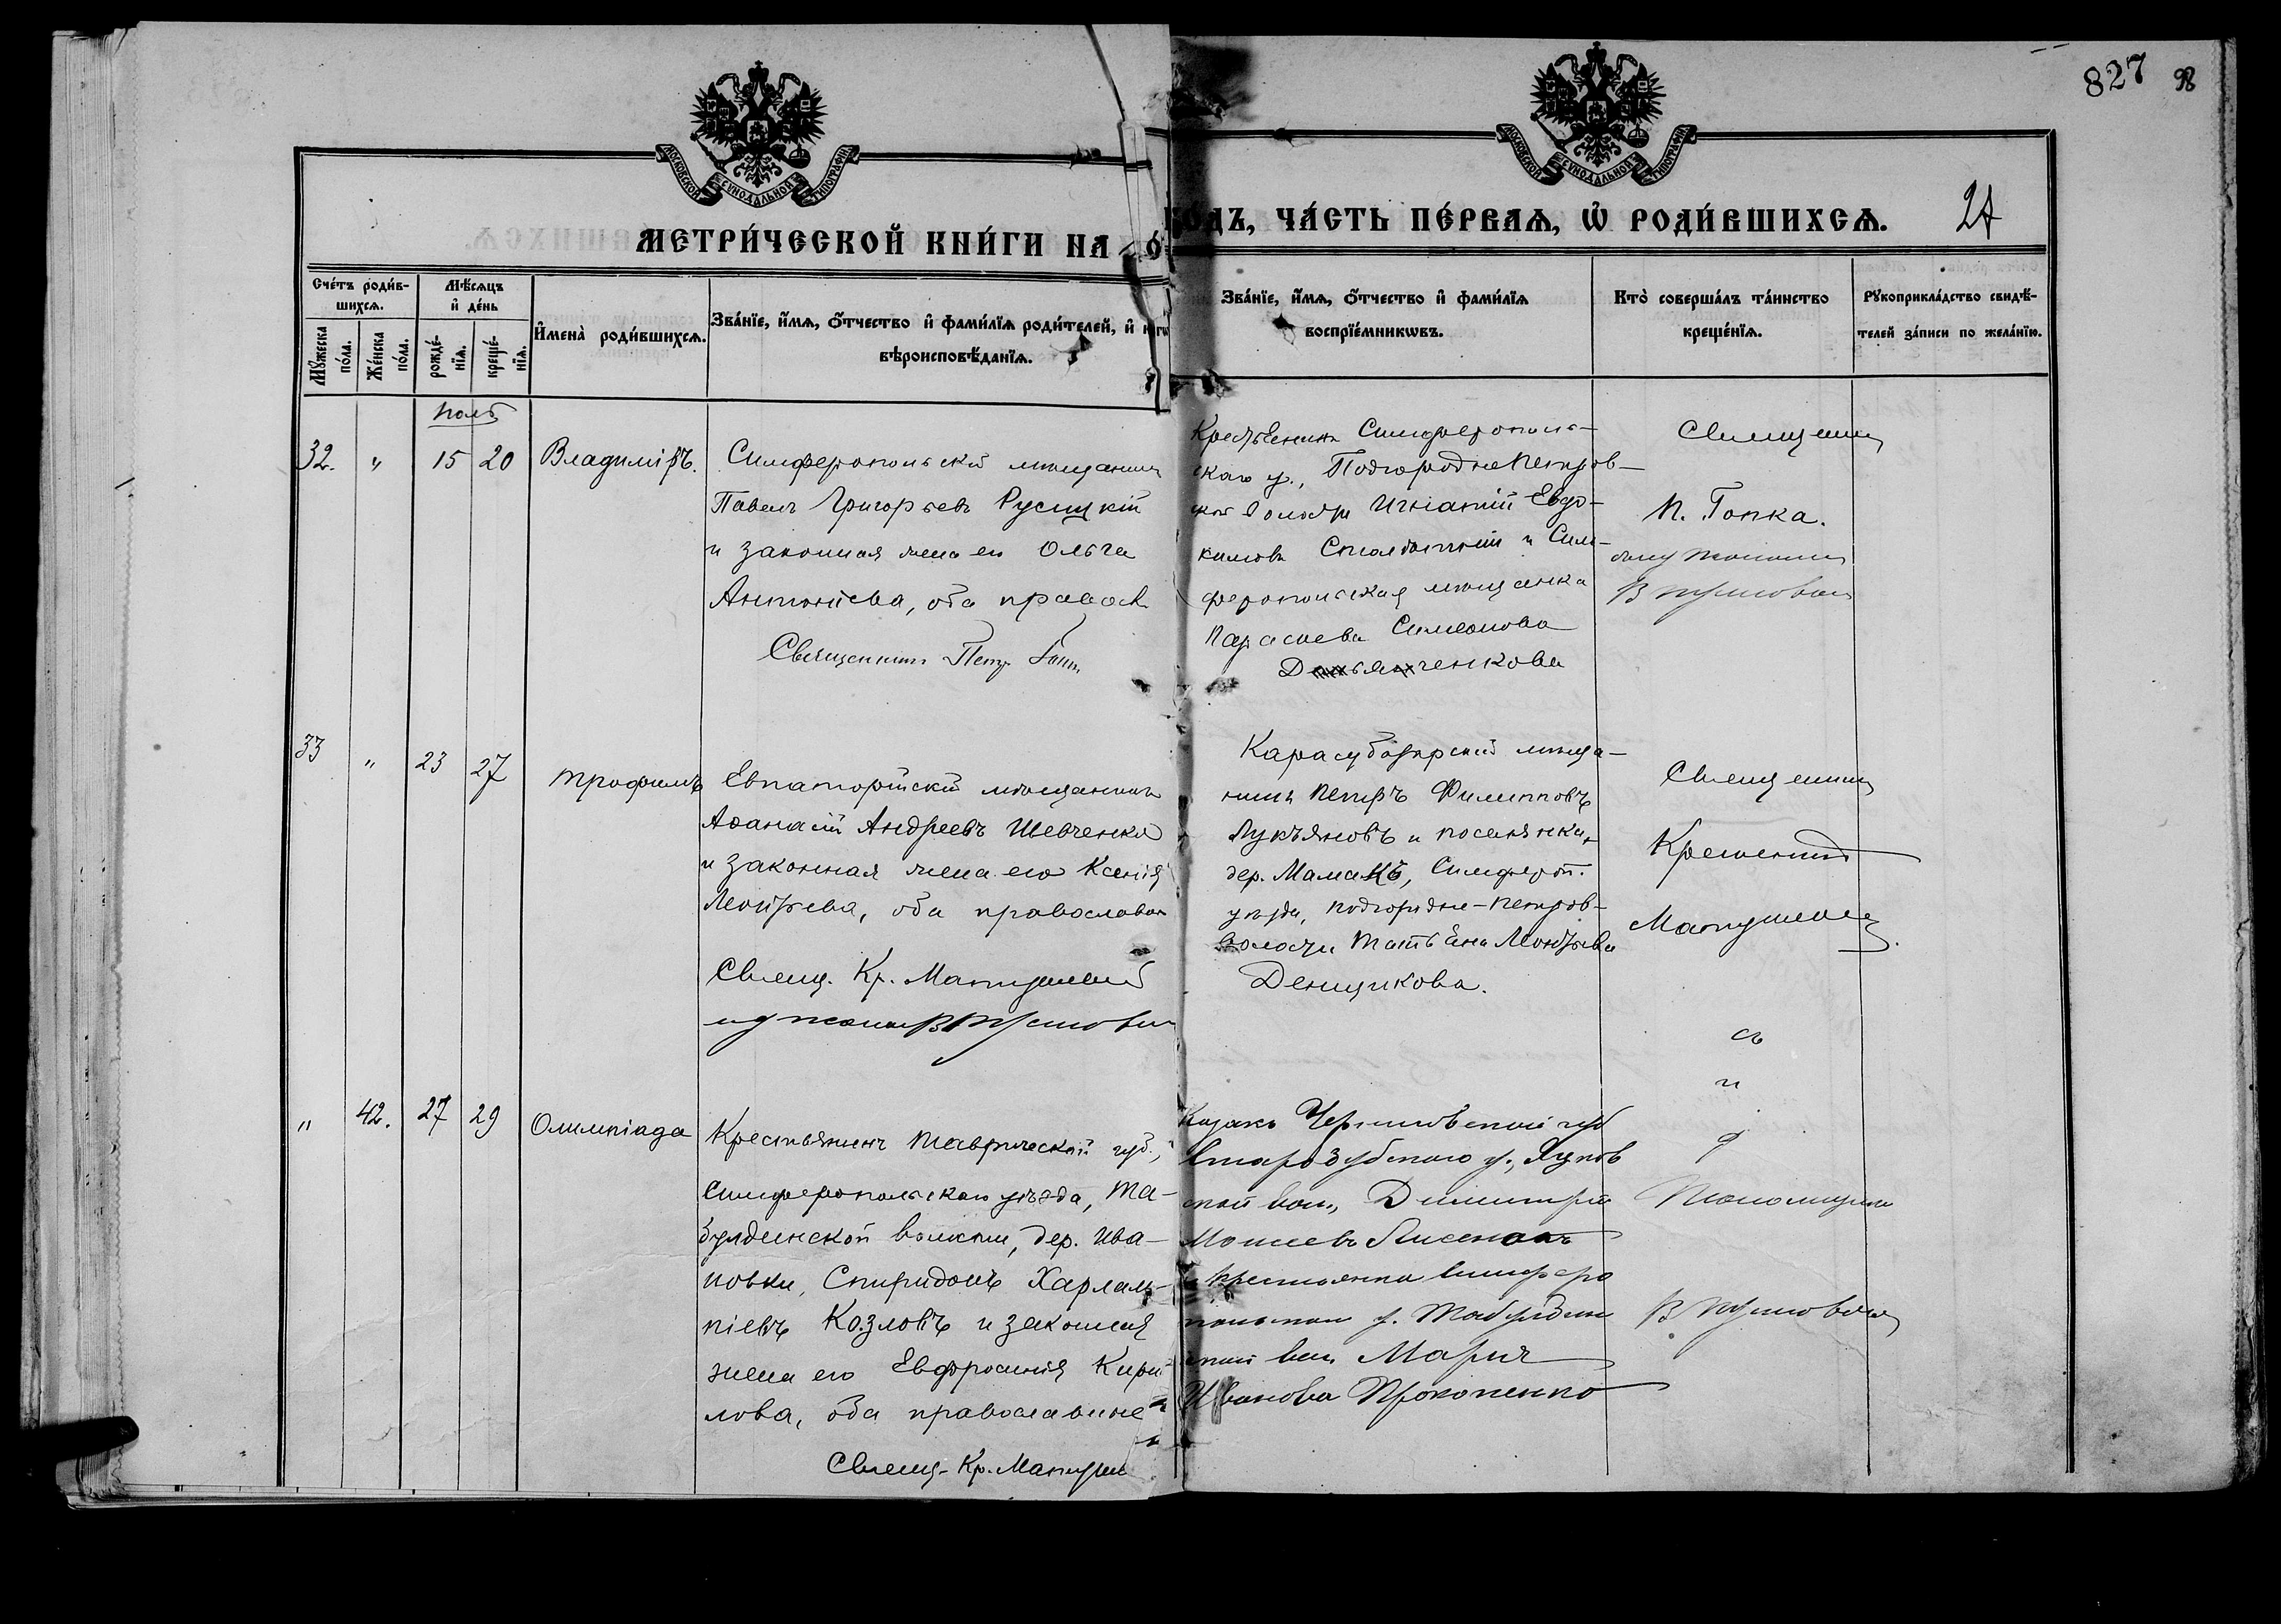 827 98
МОСКОВСКОЙ СѴНОДАЛЬНОЙ ТИПОГРАФІИ
МОСКОВСКОЙ СѴНОДАЛЬНОЙ ТИПОГРАФІИ
МЕТРИ́ЧЕСКОЙ КНИ́ГИ НА
ГО́ДЪ, ЧА́СТЬ ПЕ́РВАѦ, Ѡ҆ РОДИ́ВШИХСѦ.
Сче́тъ роди́в-
шихсѧ.
Мѣ́сѧцъ
и҆ де́нь
Мꙋ́жеска
по́ла.
Же́нска
по́ла.
рожде́-
нїѧ.
креще́-
нїѧ.
И҆мена̀ роди́вшихсѧ.
Зва́нїе, и҆́мѧ, ѻ҆́тчество и҆ фами́лїѧ роди́телей, и҆
вѣроисповѣ́данїѧ.
Зва́нїе, и҆́мѧ, ѻ҆́тчество и҆ фами́лїѧ
воспрїе́мникѡвъ.
Кто̀ соверша́лъ та́инство
креще́нїѧ.
Рꙋкоприкла́дство свидѣ́-
телей за́писи по жела́нїю.
32. " 15 20 Владиміръ.
Симферопольскій мѣщанинъ
Павелъ Григорьевъ Русицкій
и законная жена его Ольга
Антоніева, оба правосл
Священникъ Петр
Крестьянинъ Симферополь-
скаго у., Подгородне Петров-
ской волости Игнатій Евдо-
кимовъ и Сим-
феропольская мѣщанка
Параскева Симеонова
Священникъ
П. Гопка.
33 " 23 27 Трофимъ
Евпаторійскій мѣщанинъ
Аѳанасій Андреевъ Шевченко
и законная жена его Ксенія
Леонтьева, оба православн
Свящ. Кр. Матушевич
Карасубазарскій мѣща-
нинъ Петръ Филипповъ
Лукъяновъ и поселянка
дер. Мамакъ, Симфероп.
уѣзда, подгородне-петров-
волости Татьяна Леонтьева
Денщикова.
Священникъ
Крескентъ
Матушевич
" 42. 27 29 Олимпіада
Крестьянинъ Таврической губ.,
Симферопольскаго уѣзда, Та-
булдинской волости, дер. Ива-
новки, Спиридонъ Харлам-
піевъ Козловъ и законная
жена его Евфросинія Кири
лова, оба православные
Свящ. Кр. Матуше
Казакъ Черниговской губ
Стародубского у.,
ской вол., Димитрій
Моисеевъ Лисенокъ
и крестьянка Симферо
польскаго у. Табулдин
ской вол. Марія
Иванова Прокопенко